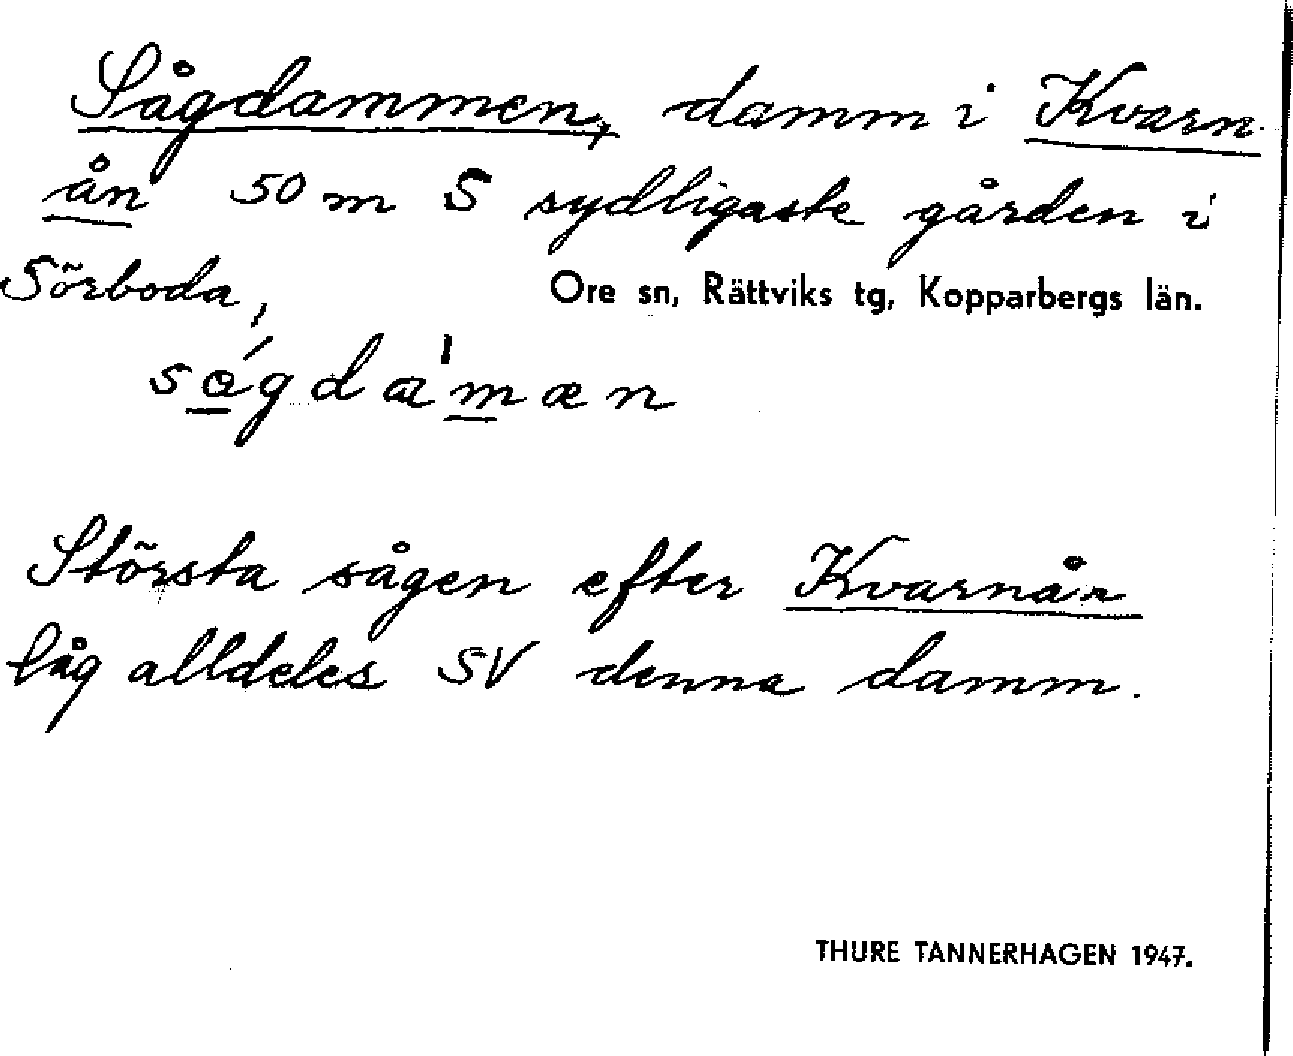 Sågdammen, damm i Kvarn-
ån 50 m S sydligaste gården i
Sörboda, Ore sn, Rättviks tg, Kopparbergs län.
Största sågen efter Kvarnån
låg alldeles SV denna damm.
THURE TANNERHAGEN 1947.